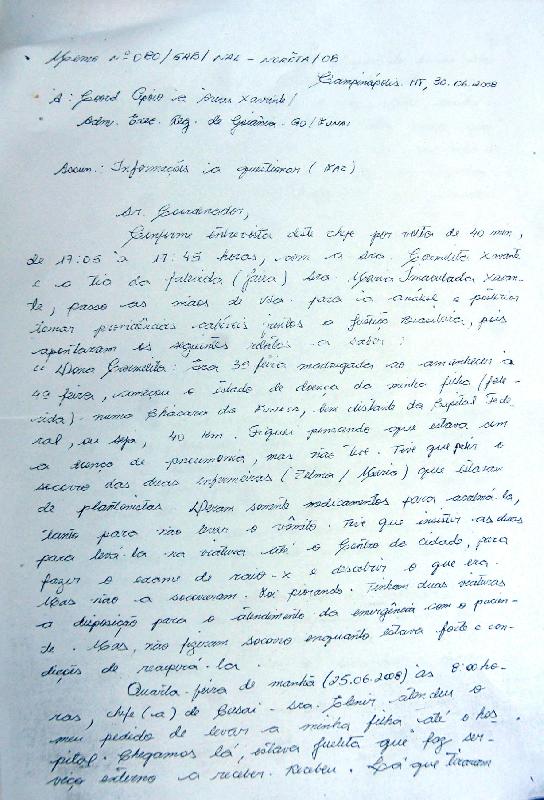 Memo Nº 080/GAB/NAL - NORÊTA/08
Campinápolis - MT, 30.06.2008
À: Coord Apoio às Áreas Xavante/
Adm. Exec. Reg. de Goiânia - GO/FUNAI
Assun.: Informações a questionar (FAZ)
Sr. Coordenador,
Conforme entrevista deste chefe por volta de 40 min,
de 17:05 à 17:45 horas, com a sra. Carmelita Xavante
e a tia da falecida (Jaira) sra. Maria Imaculada Xavan-
te, passo as mãos de Vsa. para a analise e posterior
tomar providências cabíveis juntos a Justiça Brasileira, pois
apontaram os seguintes relatos a saber:
" Dona Carmelita: Era 3ª feira madrugada ao amanhecer a
4ª feira, começou o estado de doença da minha filha (fale-
cida) - numa Chácara da Funasa, bem distante da Capital Fede-
ral, ou seja, 40 Km. Fiquei pensando que estava com
a doença de pneumonia, mas não teve. Tive que pedir o
socorro das duas enfermeiras (Telma / Maria) que estavam
de plantonistas. Deram somente medicamentos para acalmá-la,
tanto para não levar o vômito. Tive que insistir as duas
para levá-la na viatura até o Centro da cidade, para
fazer o exame de raio-x e descobrir o que era.
Mas não a socorreram. Foi piorando. Tinham duas viaturas
a disposição para o atendimento da emergência com o pacien-
te. Mas, não fizeram socorro enquanto estava forte e con-
dições de recuperá-la.
Quarta-feira de manhã (25.06.2008) às 8:00 ho-
ras, chefe (a) de Casai - sra. Elenir atendeu o
meu pedido de levar a minha filha até o hos-
pital. Chegamos lá, estava que faz ser-
viço externo a receber. Recebeu. Lá que tiraram